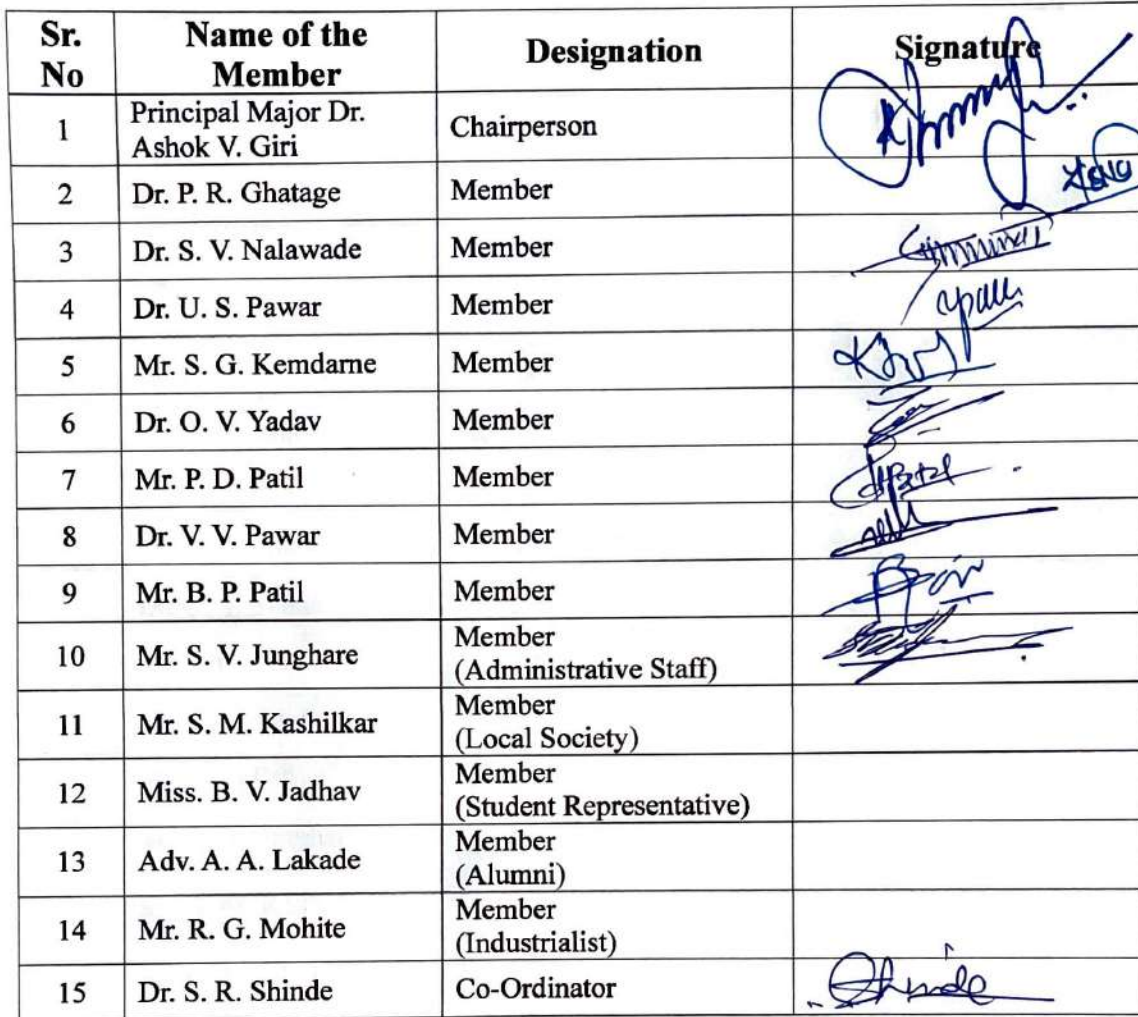 Sr. No Name of the Member Designation Signature
1 Principal Major Dr. Ashok V. Giri Chairperson
2 Dr. P. R. Ghatage Member
3 Dr. S. V. Nalawade Member
4 Dr. U. S. Pawar Member
5 Mr. S. G. Kemdarne Member
6 Dr. O. V. Yadav Member
7 Mr. P. D. Patil Member
8 Dr. V. V. Pawar Member
9 Mr. B. P. Patil Member
10 Mr. S. V. Junghare Member (Administrative Staff)
11 Mr. S. M. Kashilkar Member (Local Society)
12 Miss. B. V. Jadhav Member (Student Representative)
13 Adv. A. A. Lakade Member (Alumni)
14 Mr. R. G. Mohite Member (Industrialist)
15 Dr. S. R. Shinde Co-Ordinator Shinde